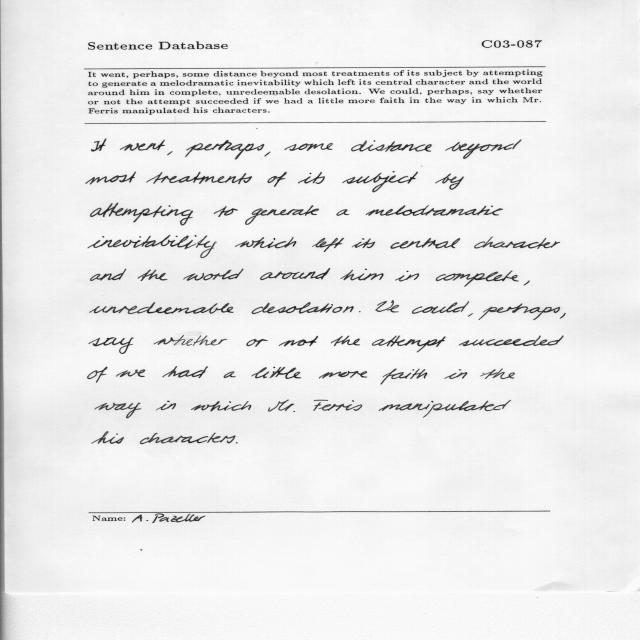 Sentence Database C03-087
It went, perhaps, some distance beyond most treatments of its subject by attempting
to generate a melodramatic inevitability which left its central character and the world
around him in complete, unredeemable desolation. We could, perhaps, say whether
or not the attempt succeeded if we had a little more faith in the way in which Mr.
Ferris manipulated his characters.
It went, perhaps, some distance beyond
most treatments of its subject by
attempting to generate a melodramatic
inevitability which left its central character
and the world around him in complete,
unredeemable desolation. We could, perhaps,
say whether or not the attempt succeeded
of we had a little more faith in the
way in which Mr. Ferris manipulated
his characters.
Name: A. Pazeller